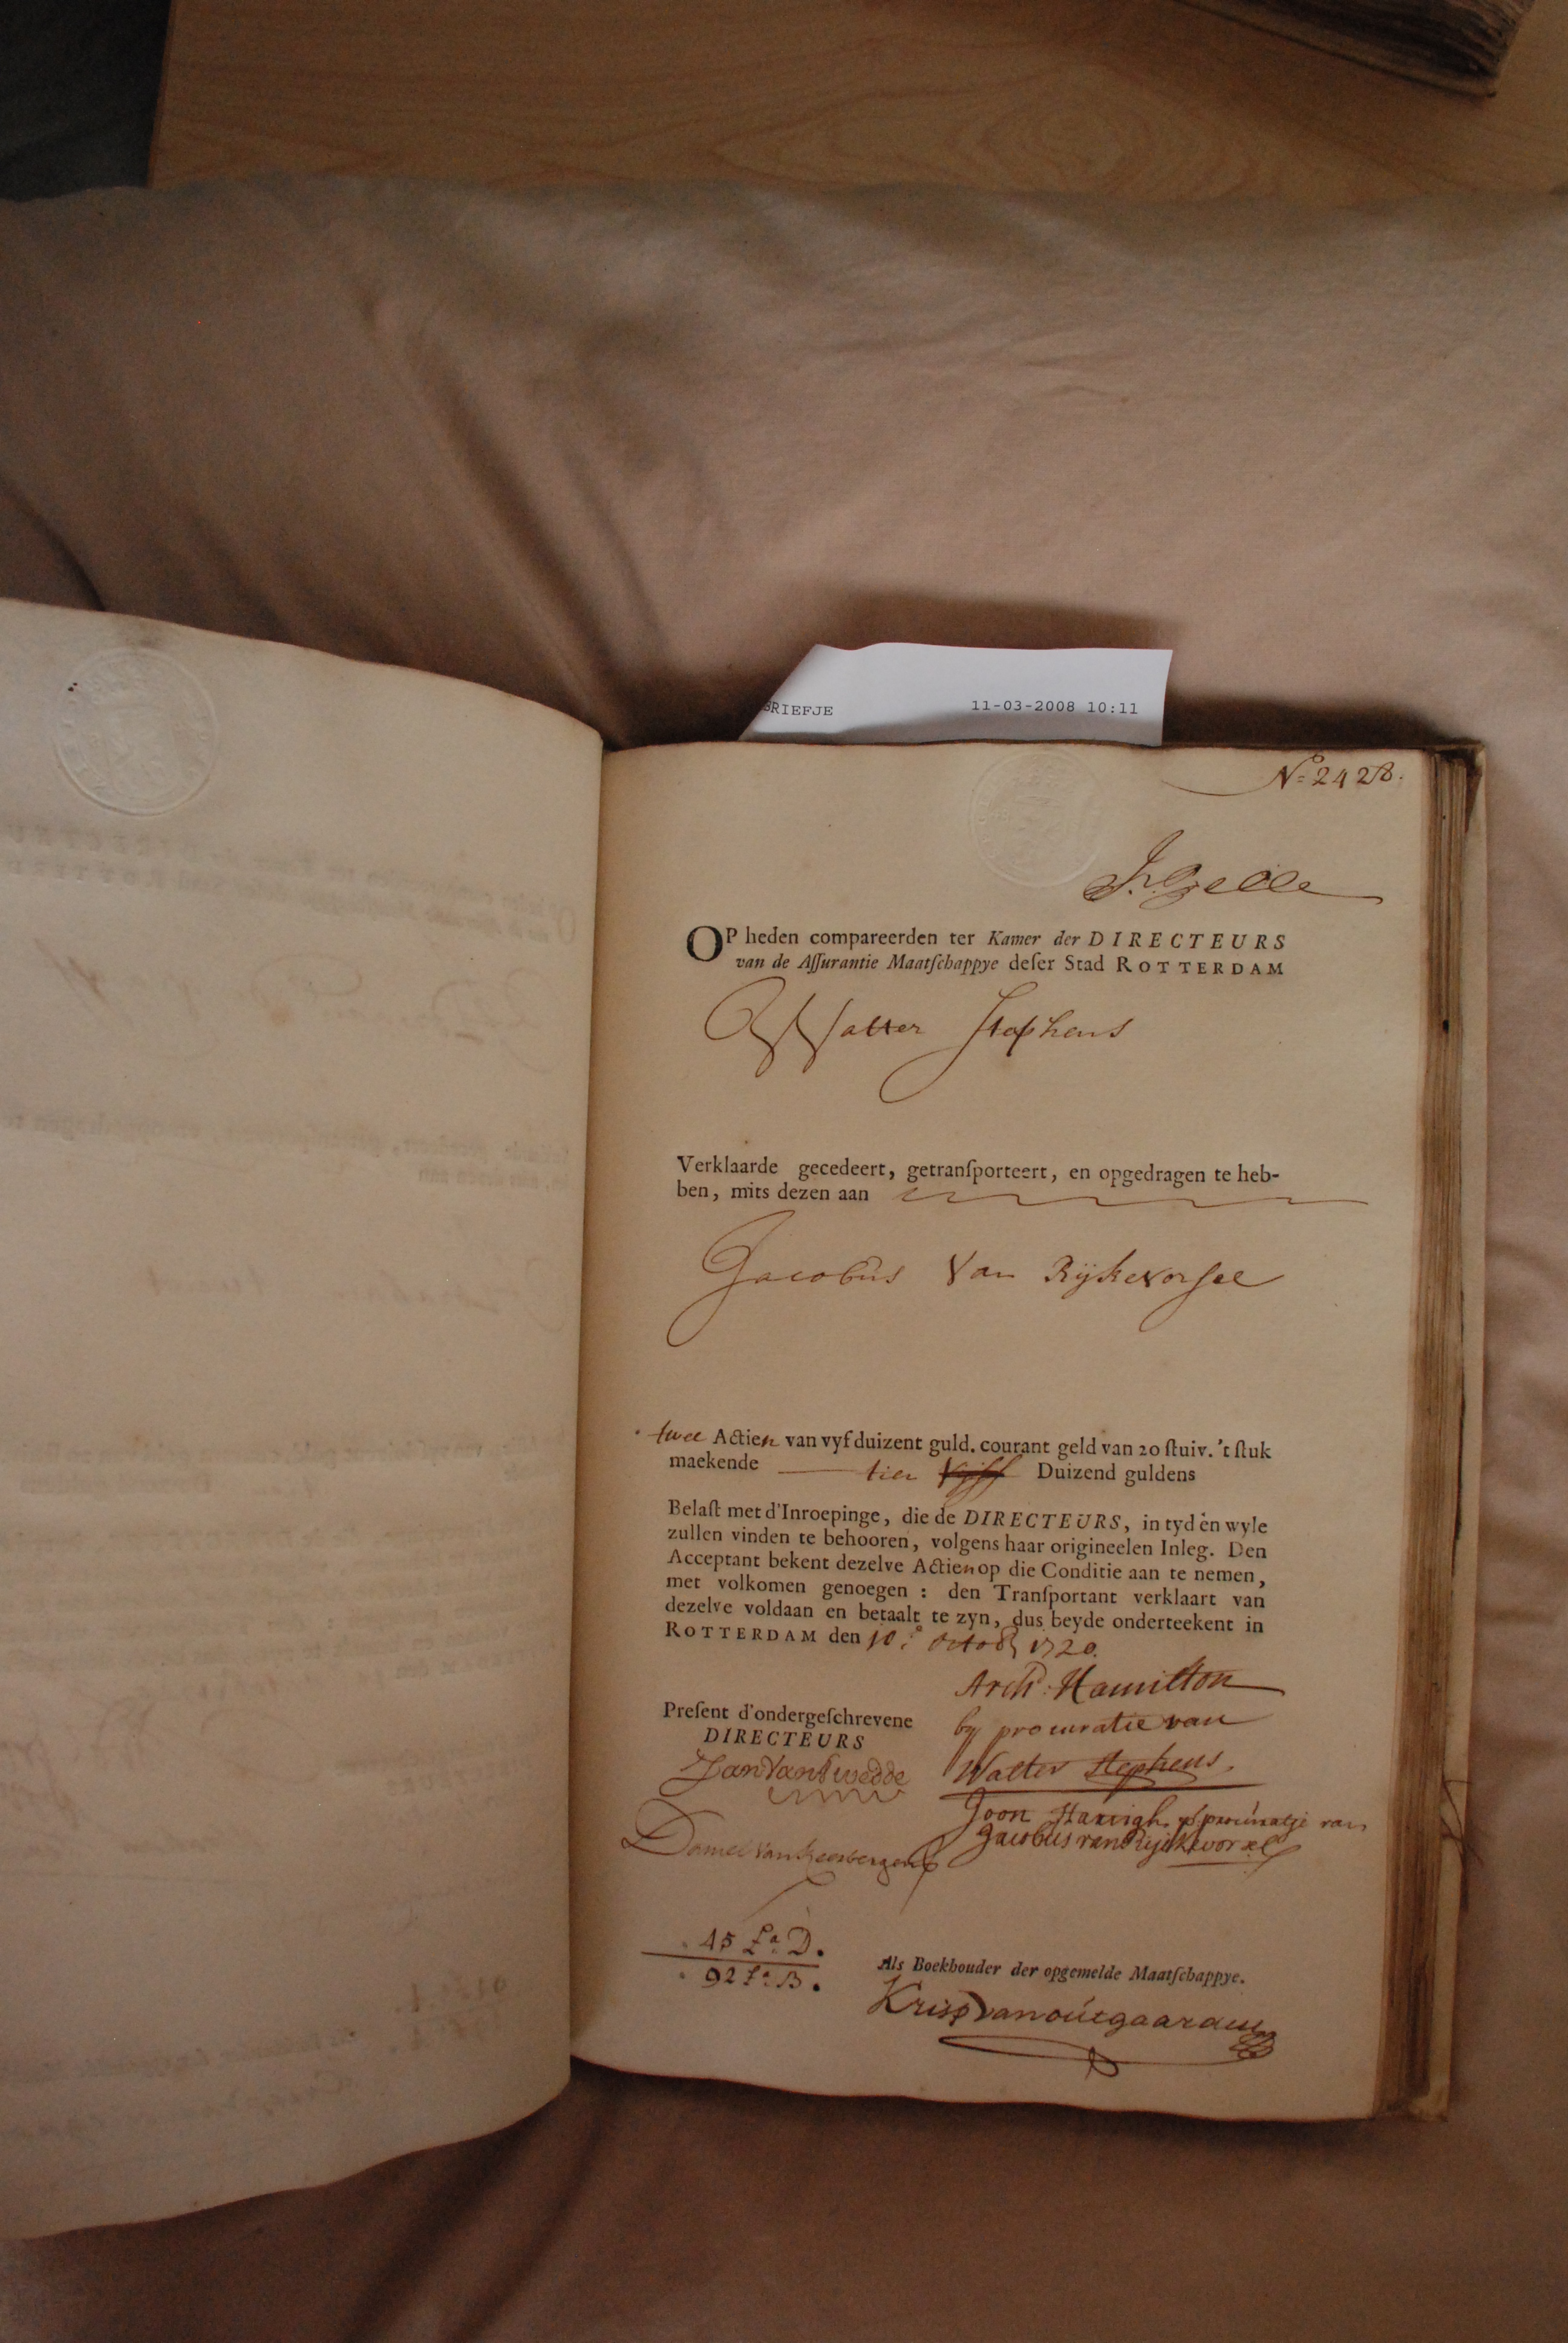 BRIEFJE 11-03-2008 10:11
No 2428.
OP heden compareerden ter Kamer der DIRECTEURS
van de Aſſurantie Maatſchappye deſer Stad ROTTERDAM
Walter Stephens
Verklaarde gecedeert, getranſporteert, en opgedragen te heb-
ben, mits dezen aan
Jacobus Van Rijkevorsel
twee Actien van vyf duizent guld. courant geld van 20 ſtuiv. 't ſtuk
maekende tien vijff Duizend guldens
Belaſt met d'Inroepinge, die de DIRECTEURS, in tyd en wyle
zullen vinden te behooren, volgens haar origineelen Inleg. Den
Acceptant bekent dezelve Actien op die Conditie aan te nemen,
met volkomen genoegen : den Tranſportant verklaart van
dezelve voldaan en betaalt te zyn, dus beyde onderteekent in
ROTTERDAM den 10e octob 1720.
Archd: Hamilton
by procuratie van
Walter Stephens.
Preſent d'ondergeſchrevene
DIRECTEURS
Jan Van
Daniel Van
Joon p procuratje van
Jacobus van Rijckevorsel
45 La D.
92 La B.
Als Boekhouder der opgemelde Maatſchappye.
Krisp van outgaarden